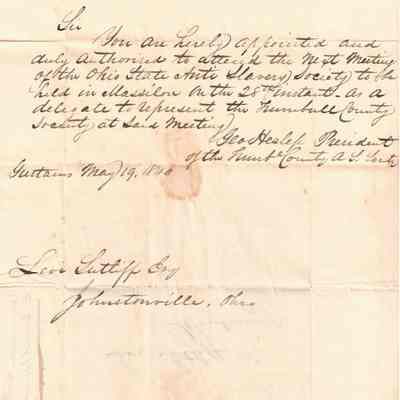 Sir
You are hereby appointed and
duly Authorised to attend the Next Meeting
of the Ohio State Anti Slavery Society to be
held in Massilon on the 28th Instant. as a
delegate to represent the Trumbull County
Society at Said Meeting
Geo Heslep President
of the Trumbl County A. S. Socty
Gustavus May 19, 1840
Levi Sutliff Esq
Johnstonville, Ohio